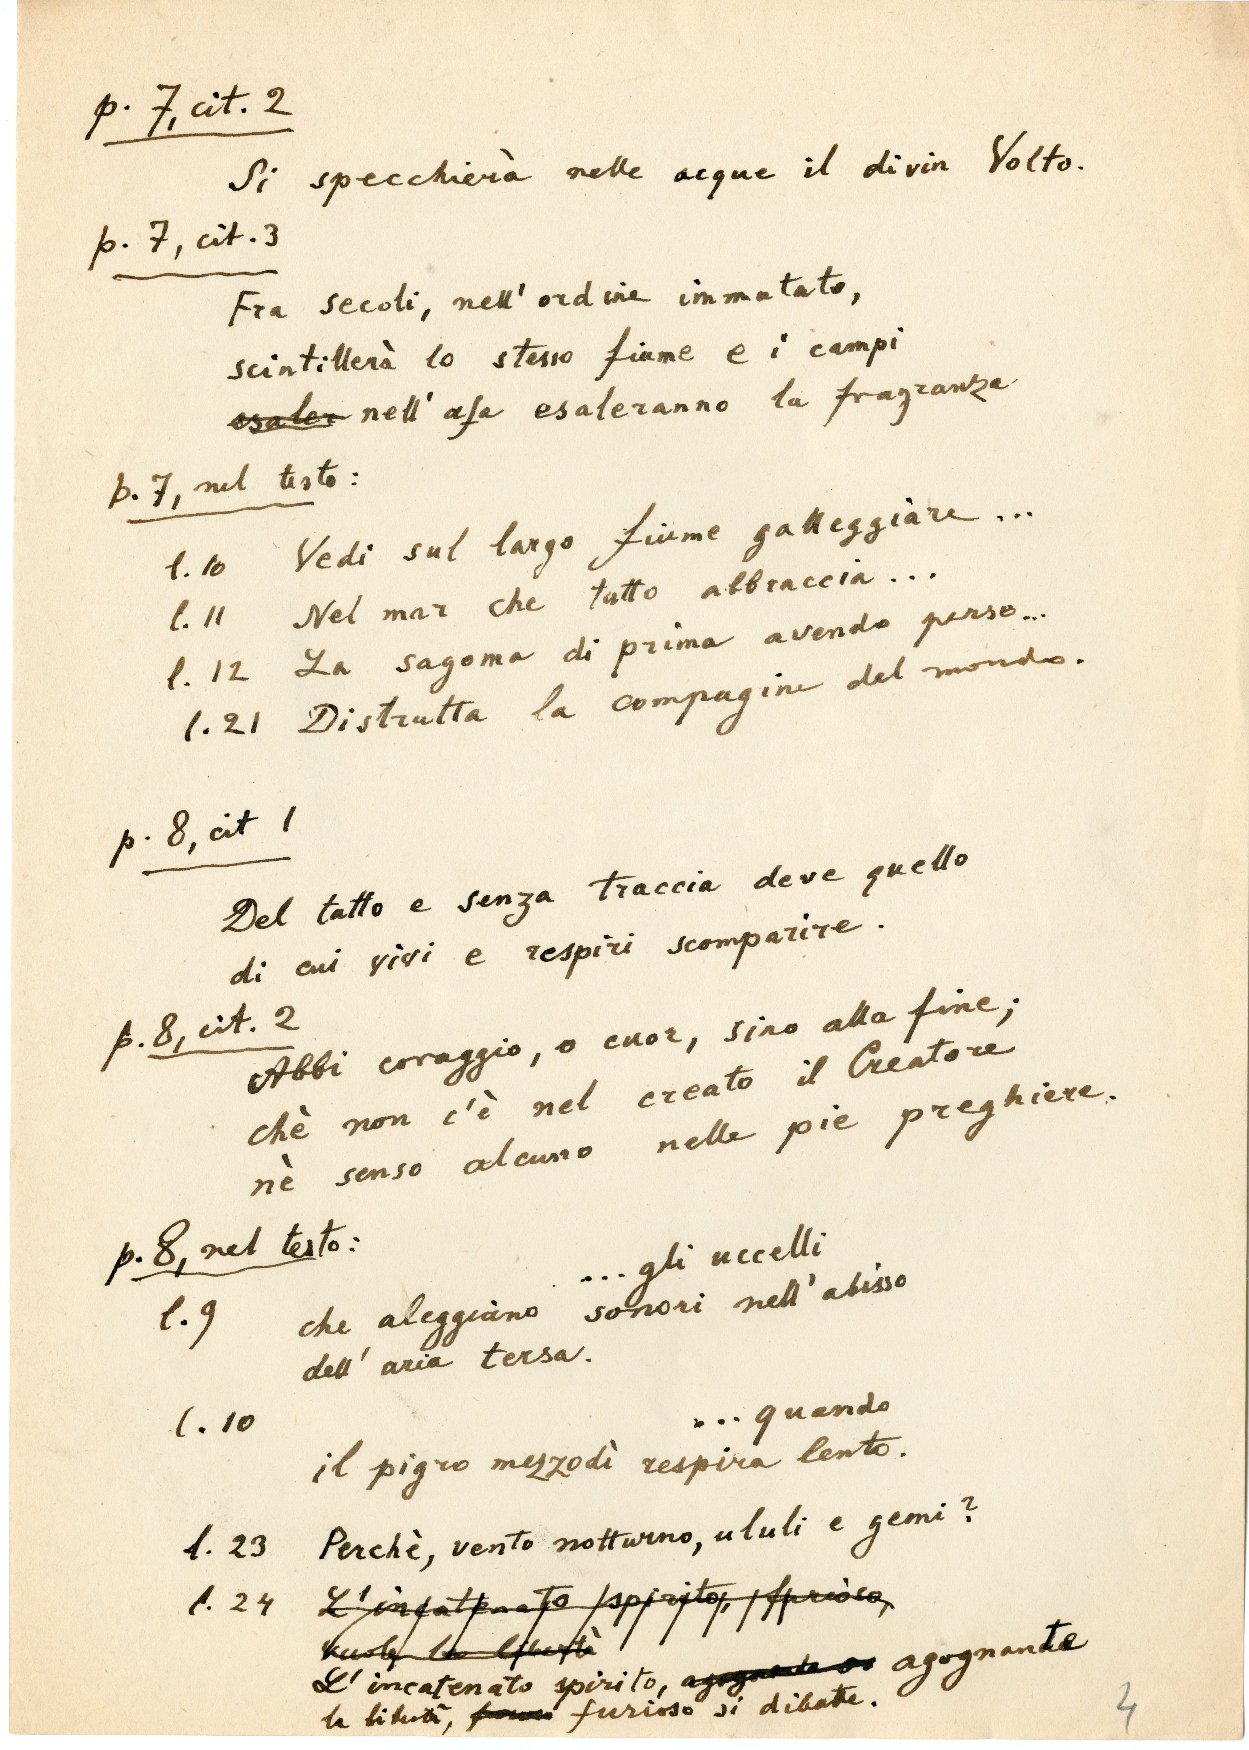 p. 7, cit. 2
Si specchierà nelle acque il divin Volto.
p. 7, cit. 3
Fra secoli, nell'ordine immutato,
scintillerà lo stesso fiume e i campi
esaler nell'afa esaleranno la fragranza
p. 7, nel testo:
l. 10 Vedi sul largo fiume galleggiàre...
l. 11 Nel mar che tutto abbraccia...
l. 12 La sagoma di prima avendo perso...
l. 21 Distrutta la compagine del mondo.
p. 8, cit 1
Del tutto e senza traccia deve quello
di cui vivi e respiri scomparire.
p. 8, cit. 2
Abbi coraggio, o cuor, sino alla fine;
chè non c'è nel creato il Creatore
nè senso alcuno nelle pie preghiere.
p. 8, nel testo:
...gli uccelli
l. 9 che aleggiàno sonori nell'abisso
dell'aria tersa.
l. 10 ...quando
il pigro mezzodì respira lento.
l. 23 Perchè, vento notturno, ululi e gemi?
l. 24 L'incatenato spirito, furioso,
vuole la libertà
L'incatenato spirito, agognante
la libertà, furioso si dibatte.
4